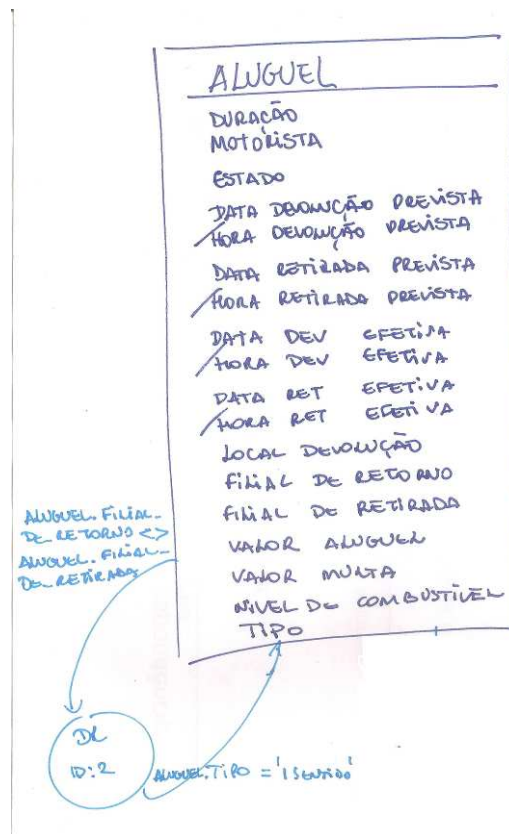 ALUGUEL
DURAÇÃO
MOTORISTA
ESTADO
DATA DEVOLUÇÃO PREVISTA
/HORA DEVOLUÇÃO PREVISTA
DATA RETIRADA PREVISTA
/HORA RETIRADA PREVISTA
DATA DEV EFETIVA
/HORA DEV EFETIVA
DATA RET EFETIVA
/HORA RET EFETIVA
LOCAL DEVOLUÇÃO
FILIAL DE RETORNO
FILIAL DE RETIRADA
VALOR ALUGUEL
VALOR MULTA
NIVEL DE COMBUSTÍVEL
TIPO
ALUGUEL.FILIAL_
DE_RETORNO <>
ALUGUEL.FILIAL_
DE_RETIRADA
DR
ID:2
ALUGUEL.TIPO = '1 SENTIDO'